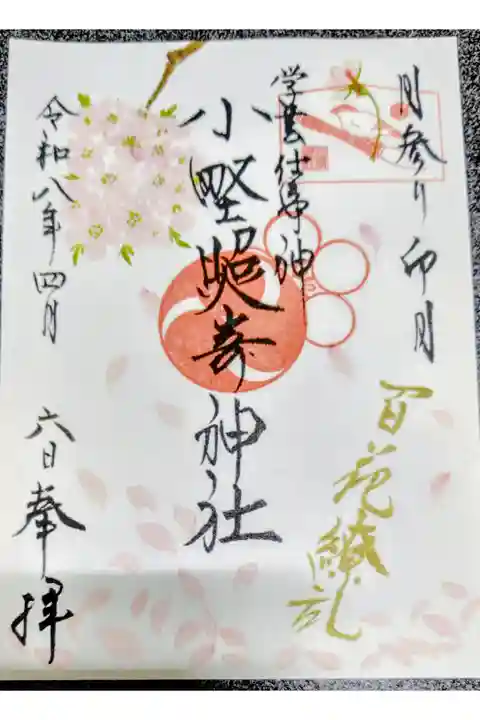 月参り 卯月
百花繚乱
学芸仕事神
小野照崎神社
令和八年四月
六日奉拝